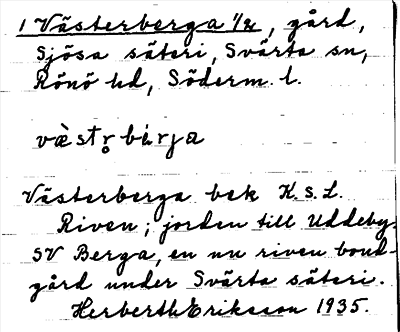 1 Västerberga 1/2, gård,
Sjösa säteri, Svärta sn,
Rönö hd, Söderm. l.
væ̀str̥bærja
Västerberga bek K.S.L.
Riven; jorden till Uddeby.
SV Berga, en nu riven bond-
gård under Svärta säteri.
Herberth Eriksson 1935.